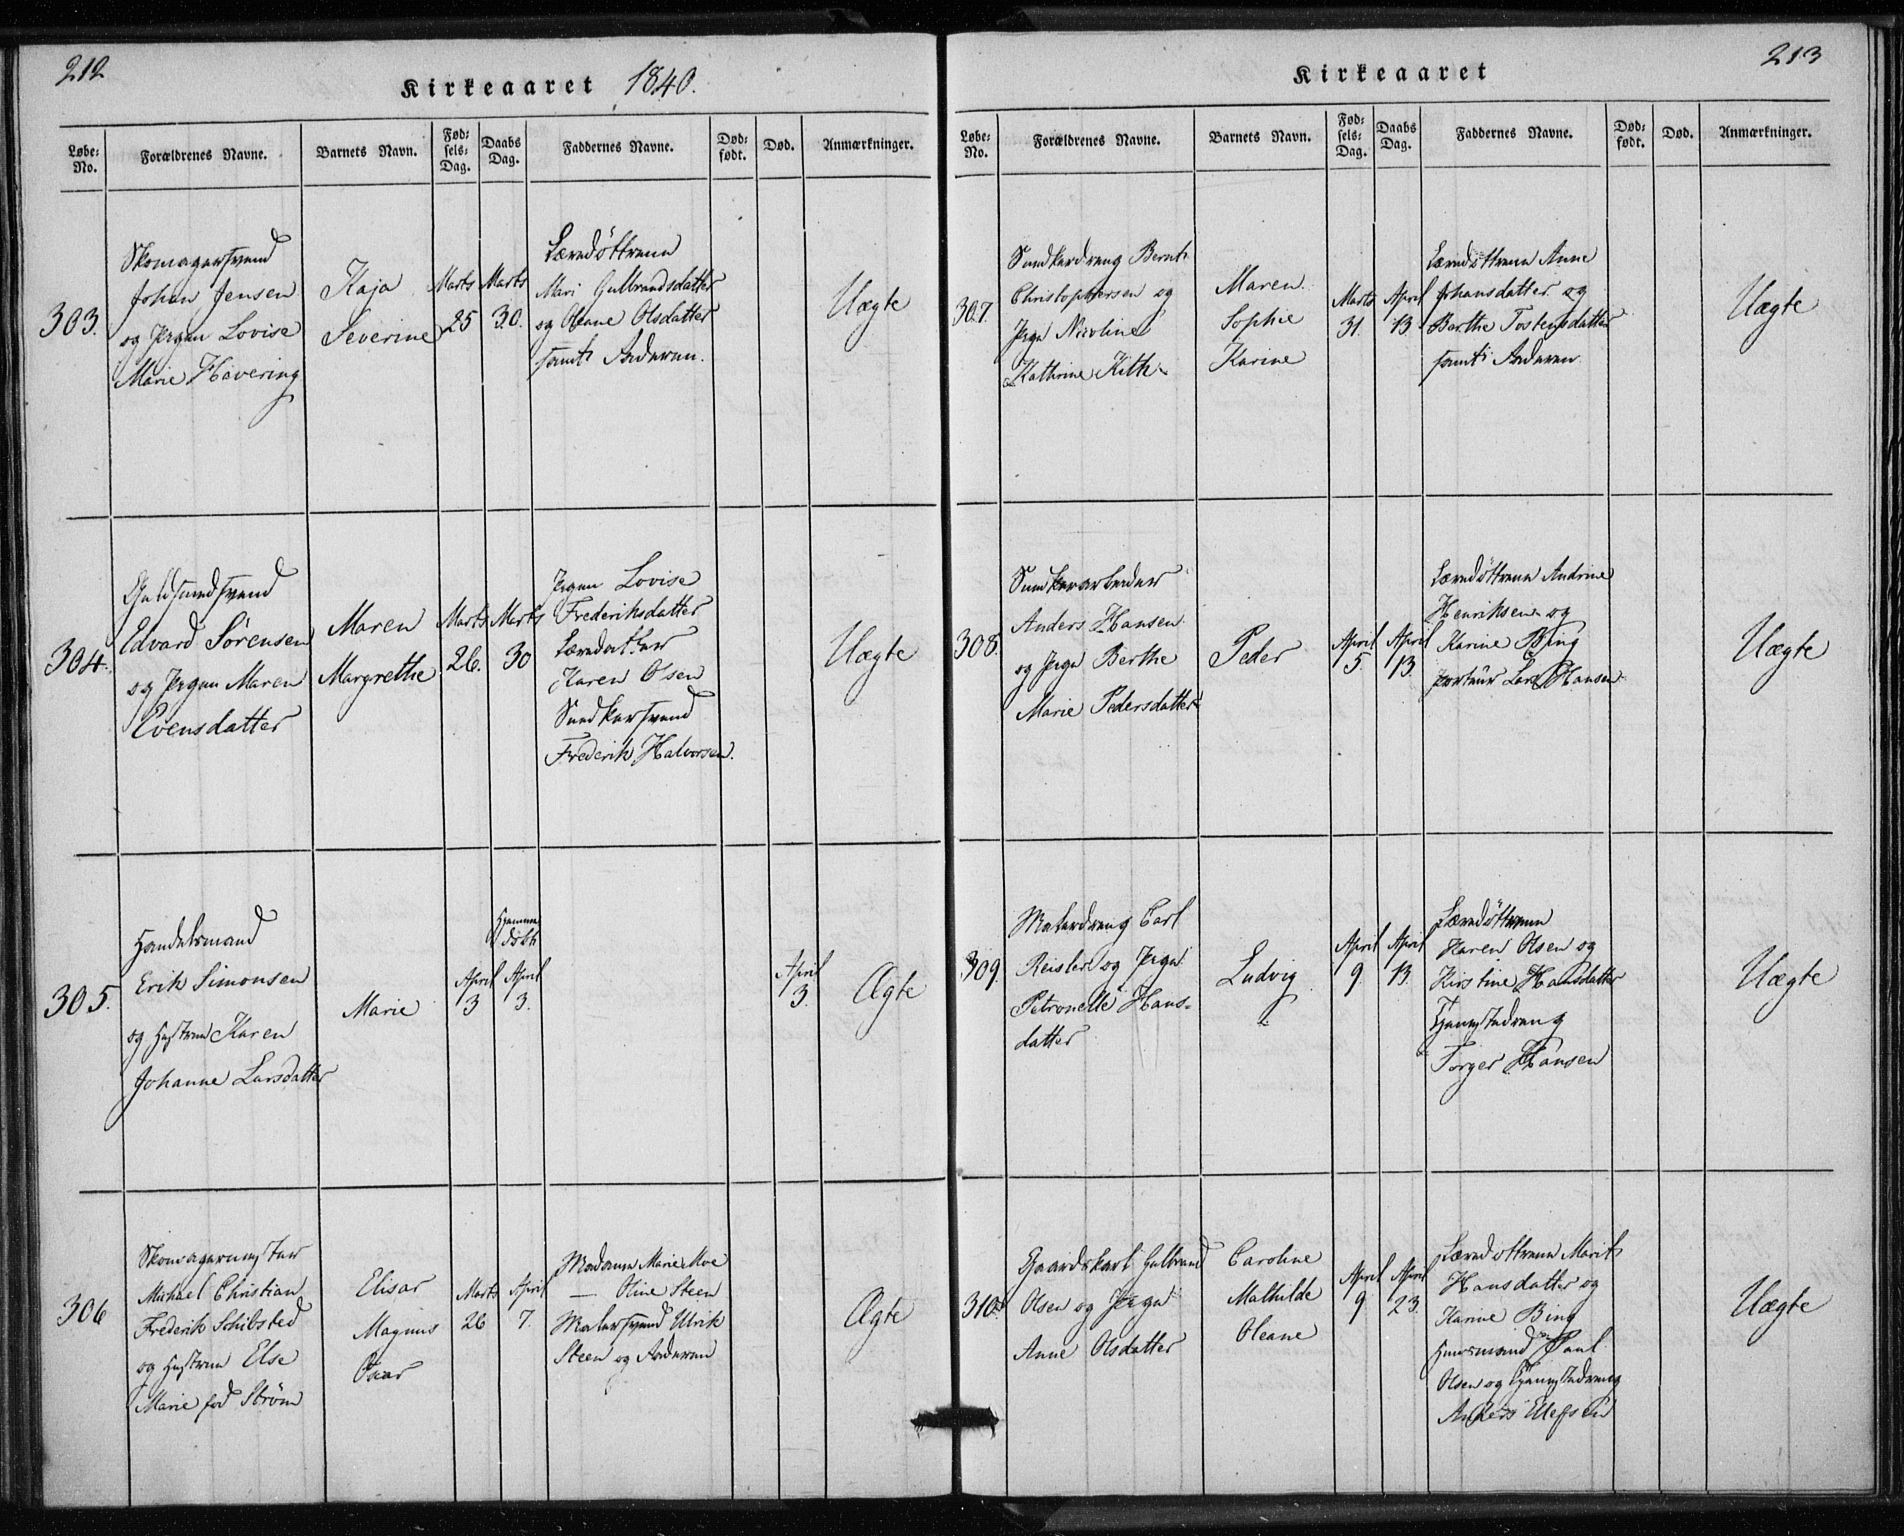 212
Kirkeaaret 1840.
Løbe-No.
Forældrenes Navne.
Barnets Navn.
Fødsels-Dag.
Daabs Dag.
Faddernes Navne.
Dødfødt.
Død.
Anmærkninger.
303.
Skomagersvend
Johan Jensen
og Pigen Lovise
Marie Hevering
Kaja
Severine
Marts
25
Marts
30.
Mari Gulbrandsdatter
og Oleane Olsdatter
samt Faderen.
Uægte
304.
Guldsmedsvend
Edvard Sørensen
og Pigen Maren
Evensdatter
Maren
Margrethe
Marts
26.
Marts
30
Pigen Lovise
Frederiksdatter
Karen Olsen
Snedkersvend
Frederik Halvorsen.
Uægte
305.
Handelsmand
Erik Simonsen
og Hustrue Karen
Johanne Larsdatter
Marie
April
3
Hjemme
døbt
April
3.
April
3.
Ægte
306
Skomagermester
Michael Christian
Frederik Schibsted
og Hustrue Else
Marie fød Strøm
Elisar
Magnus
Marts
26
April
7.
Madame Marie Moe
— Oline Steen
Malersvend Ulrik
Steen og Faderen
Ægte
213
Kirkeaaret
Løbe-No.
Forældrenes Navne.
Barnets Navn.
Fødsels-Dag.
Daabs Dag.
Faddernes Navne.
Dødfødt.
Død.
Anmærkninger.
307.
Snedkerdreng Bernt
Christophersen og
Pige Nicoline
Kathrine
Maren
Sophie
Karine
Marts
31.
April
13.
Anne
Johansdatter og
Berthe Tostensdatter
samt Faderen.
Uægte
308.
Anders Hansen
og Pige Berthe
Marie Pedersdatter
Peder
April
5
April
13.
Andrine
Henriksen og
Karine Bing
Lars Hansen
Uægte
309.
Malerdreng Carl
Reisler og Pige
Petronelle Hans-
datter
Ludvig
April
9
April
13.
Karen Olsen og
Kirstine Hansdatter
Tjenestedreng
Torger Hansen
Uægte
310.
Gaardskarl Gulbrand
Olsen og Pige
Anne Olsdatter
Caroline
Mathilde
Oleane
April
9
April
23.
Marit
Hansdatter og
Karine Bing
Huusmand Paul
Olsen og Tjenestedreng
Anders Ellefsen
Uægte